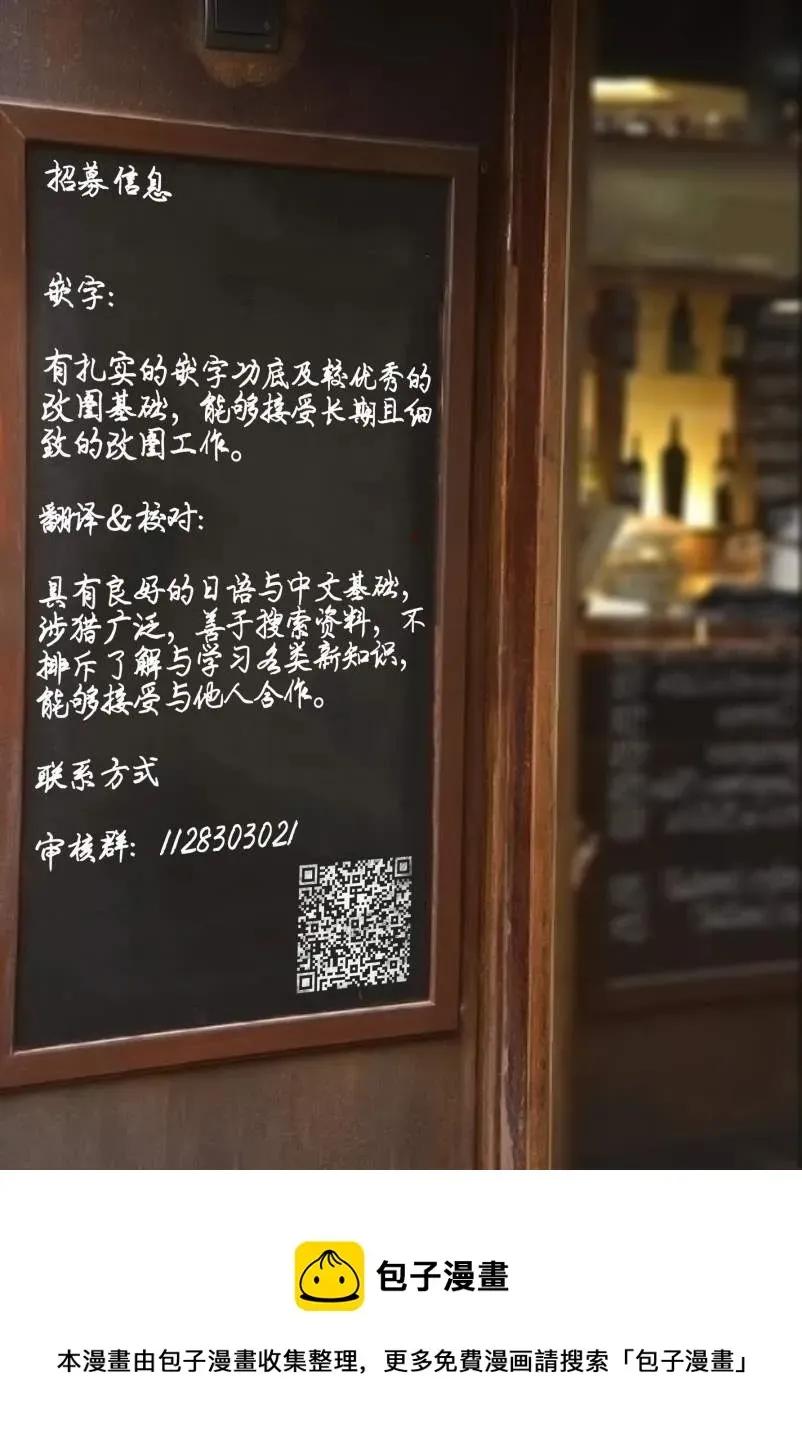 招募信息
嵌字：
有扎实的嵌字功底及较优秀的
改图基础，能够接受长期且细
致的改图工作。
翻译&校对：
具有良好的日语与中文基础，
涉猎广泛，善于搜索资料，不
排斥了解与学习各类新知识，
能够接受与他人合作。
联系方式
审核群：1128303021
包子漫畫
本漫畫由包子漫畫收集整理，更多免費漫画請搜索「包子漫畫」